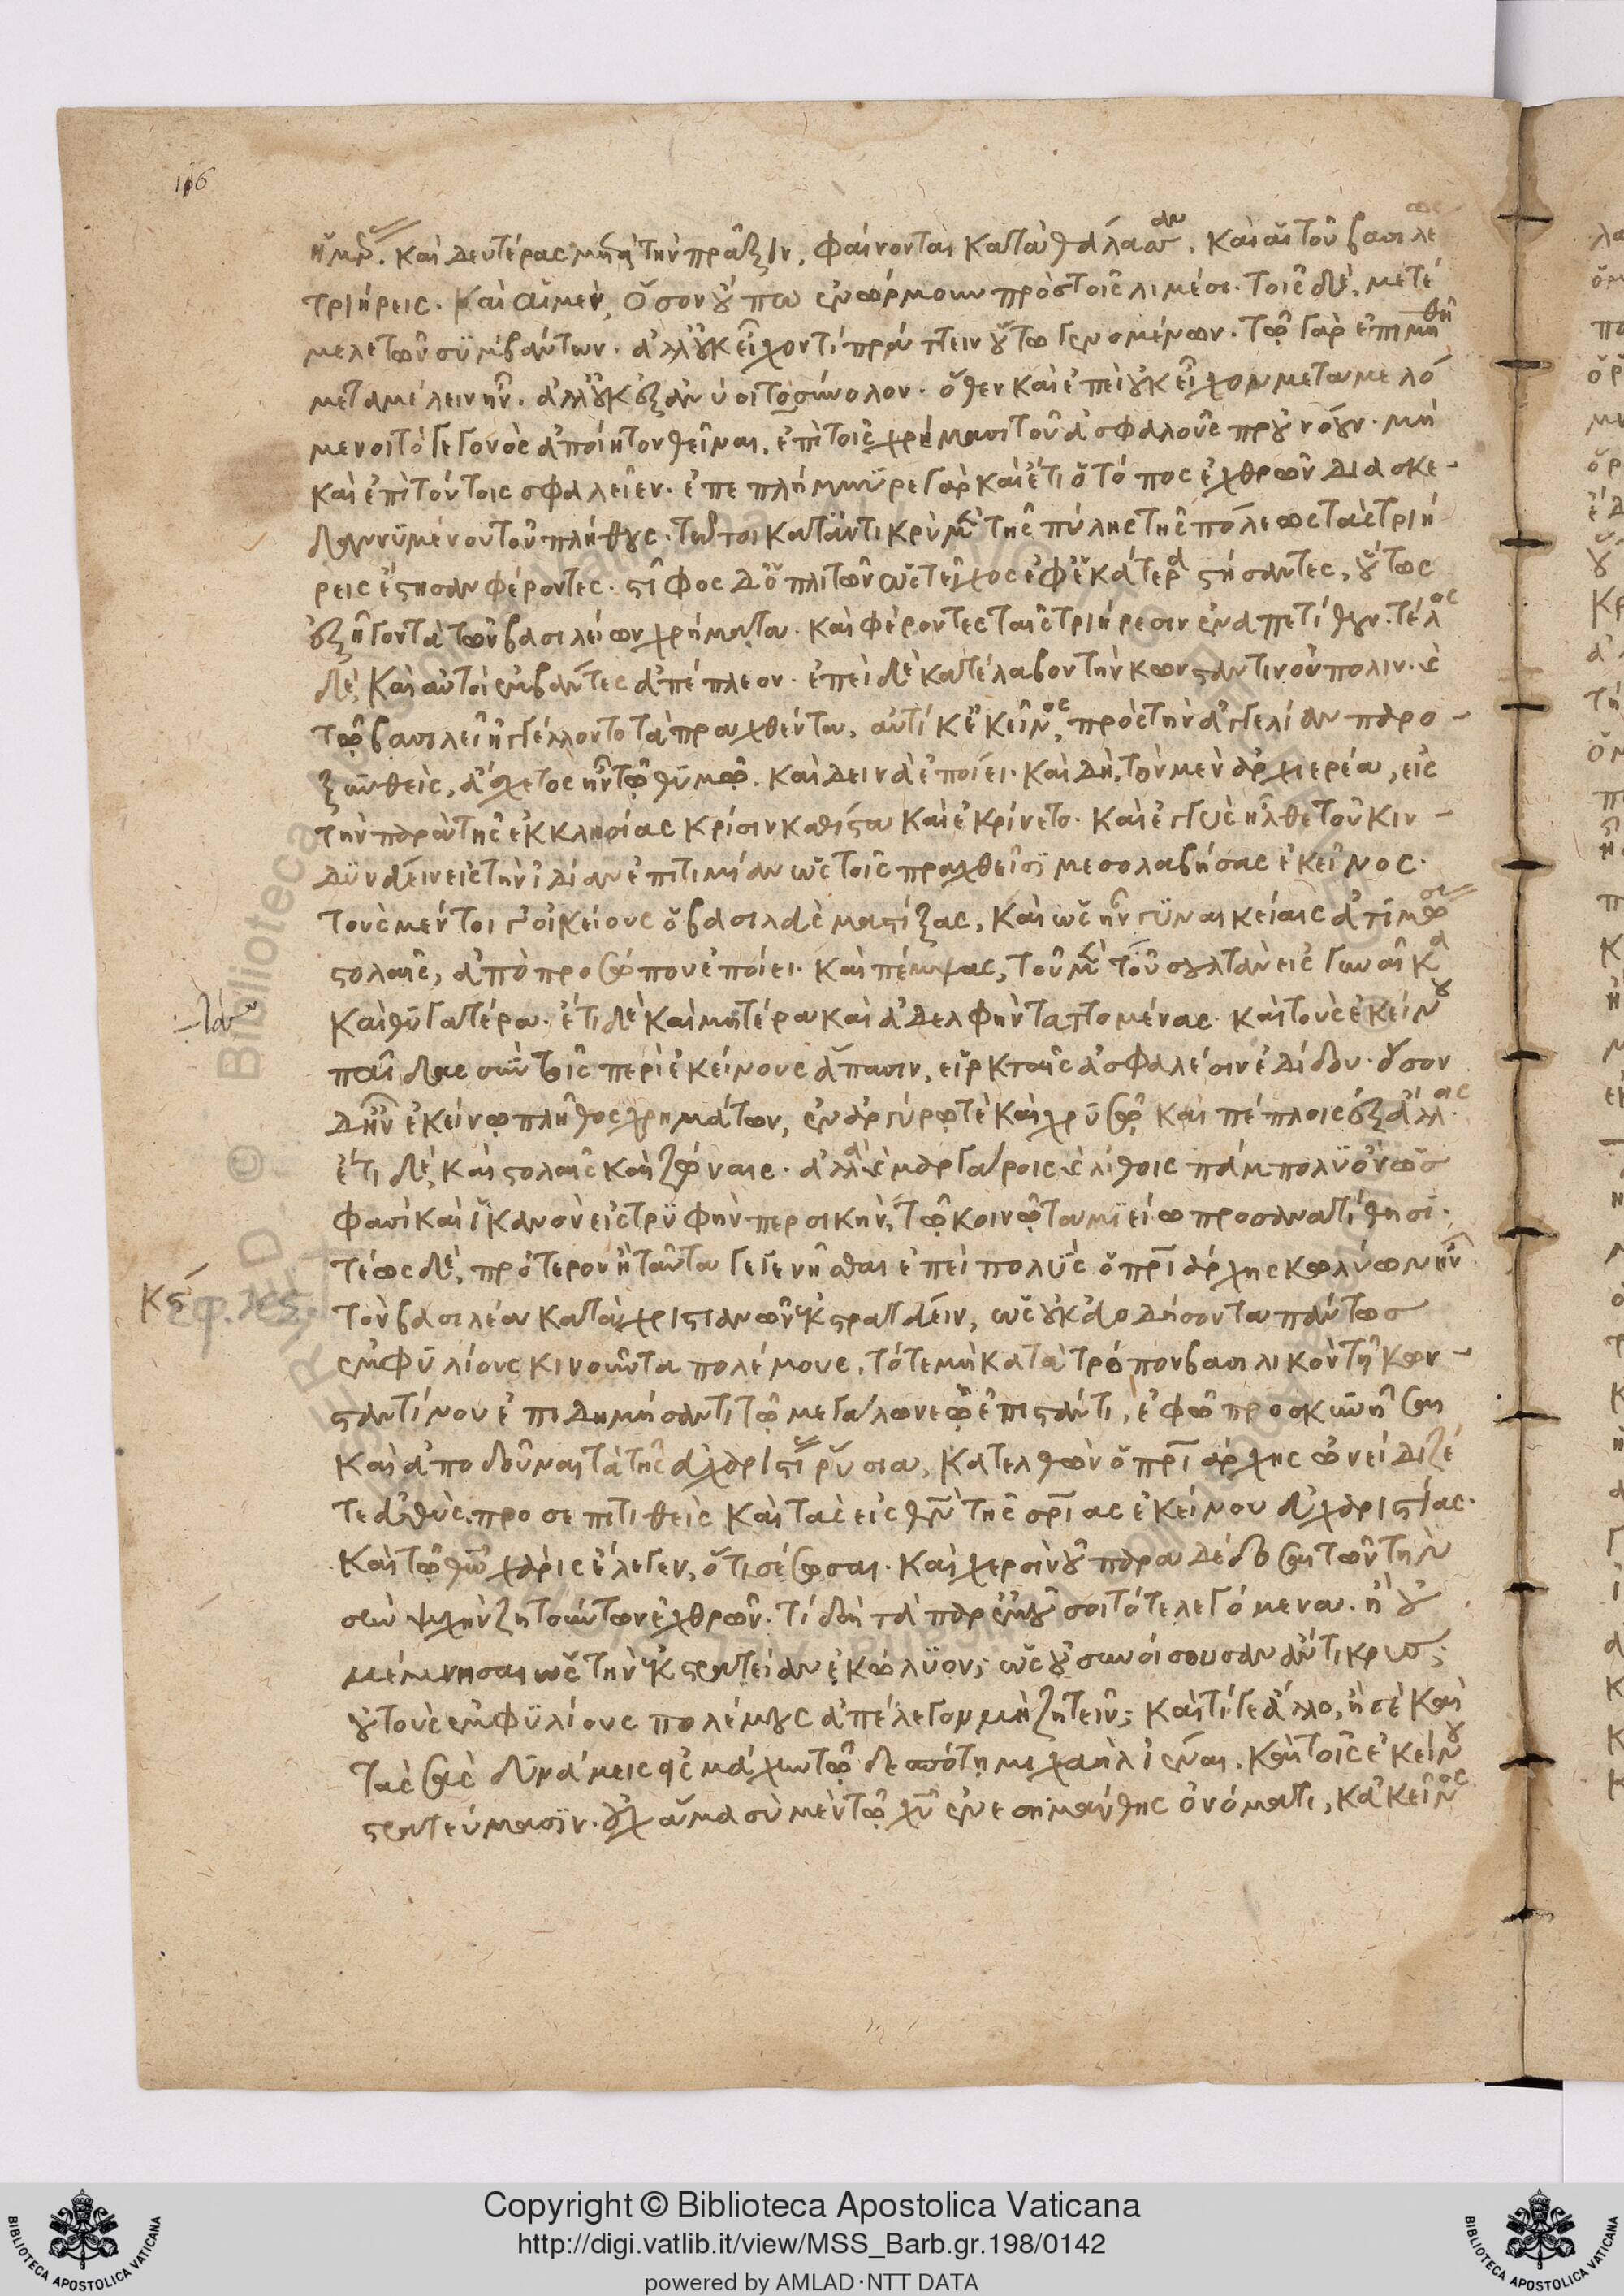 116
ἡμέρας. καὶ δευτέρας μετὰ τὴν πρᾶξιν, φαίνονται κατὰ θάλασσαν, καὶ αἱ τοῦ βασιλέως
τριήρεις. καὶ αἱ μὲν, ὅσον οὔπω ἐνώρμουν πρὸς τοῖς λιμέσι. τοῖς δὲ, μετέ
μελε τῶν συμβάντων. ἀλλ' οὐκ εἶχον τί πράττειν οὕτω γενομένων. τῷ γὰρ ἐπιμηθεῖ
μεταμέλειν ἦν. ἀλλ' οὐκ ἐξὸν τὸ σύνολον. ὅθεν καὶ ἐπεὶ οὐκ εἶχον μεταμελό
μενοι τὸ γεγονὸς ἀποίητον θεῖναι, ἐπὶ τοῖς χρήμασι τοῦ ἀσφαλοῦς προὐνόουν. μὴ
καὶ ἐπὶ τούτοις σφαλεῖεν. ἐπεπλήμμυρε γὰρ καὶ ἔτι ὁ τόπος ἐχθρῶν διασκε-
δαννυμένου τοῦ πλήθους. τῷ τοι καταντικρὺ μὲν τῆς πύλης τῆς πόλεως τὰς τριή
ρεις ἔστησαν φέροντες. στῖφος δ' ὁπλιτῶν ὡς τεῖχος ἐφ' ἑκάτερα στήσαντες, οὕτως
ἐξῆγον τὰ τῶν βασιλείων χρήματα. καὶ φέροντες ταῖς τριήρεσιν ἐναπετίθουν. τέλος
δὲ, καὶ αὐτοὶ ἐμβάντες ἀπέπλεον. ἐπεὶ δὲ κατέλαβον τὴν κωνσταντινούπολιν. καὶ
τῷ βασιλεῖ ἠγγέλλοντο τὰ πραχθέντα, αὐτίκ' ἐκεῖνος, πρὸς τὴν ἀγγελίαν παρο-
ξυνθεὶς, ἄσχετος ἦν τῷ θυμῷ. καὶ δεινὰ ἐποίει. καὶ δὴ, τὸν μὲν ἀρχιερέα, εἰς
τὴν παρὰ τῆς ἐκκλησίας κρίσιν καθίστα καὶ ἐκρίνετο. καὶ ἐγγὺς ἦλθε τοῦ κιν-
δυνεύειν εἰς τὴν ἰδίαν ἐπιτιμίαν ὡς τοῖς πραχθεῖσι μεσολαβήσας ἐκεῖνος.
τοὺς μέντοι γ' οἰκείους ὁ βασιλεὺς μαστίξας, καὶ ὡς ἦν γυναικείαις ἀτιμώσας
στολαῖς, ἀπὸ προσώπου ἐποίει. καὶ πέμψας, τοῦ μὲν τοῦ σουλτὰν εἰς γυναῖκα
καὶ θυγατέρα. ἔτι δὲ καὶ μητέρα καὶ ἀδελφὴν ταττομένας. καὶ τοὺς ἐκείνου
παῖδας σὺν τοῖς περὶ ἐκείνους ἅπασιν, εἱρκταῖς ἀσφαλέσιν ἐδίδου. ὅσον
δ' ἦν ἐκείνῳ πλῆθος χρημάτων, ἐν ἀργύρῳ τὲ καὶ χρυσῷ καὶ πέπλοις ἐξάλλοις
ἔτι δὲ, καὶ στολαῖς καὶ ζώναις. ἀλλὰ καὶ μαργάροις καὶ λίθοις πάμπολυ ὂν ὥς
φασι καὶ ἱκανὸν εἰς τρυφὴν περσικὴν, τῷ κοινῷ ταμιείῳ προσανατίθησι.
τέως δὲ, πρότερον ἢ ταῦτα γεγενῆσθαι ἐπεὶ πολὺς ὁ πατριάρχης κωλύων ἦν
τὸν βασιλέα κατὰ χριστιανῶν ἐκστρατεύειν, ὡς οὐκ εὐοδήσοντα πάντως
ἐμφυλίους κινοῦντα πολέμους, τότε μὴ κατὰ τρόπον βασιλικὸν τῇ κων-
σταντίνου ἐπιδημήσαντι τῷ μεγάλω νεῷ ἐπιστάντι, ἐφ' ᾧ προσκυνῆσαι
καὶ ἀποδοῦναι τὰ τῆς εὐχαριστίας ῥύσια, κατελθὼν ὁ πατριάρχης ὠνείδιζέ
τε εὐθὺς. προσεπιτιθεὶς καὶ τὰς εἰς θεὸν τῆς σωτηρίας ἐκείνου εὐχαριστίας.
καὶ τῷ θεῷ χάρις ἔλεγεν, ὅτι σέσωσαι. καὶ χερσὶν οὐ παραδέδοσαι τῶν τὴν
σὴν ψυχὴν ζητούντων ἐχθρῶν. τί δαὶ τὰ παρ' ἐμοῦ σοι τότε λεγόμενα. ἢ οὐ
μέμνησαι ὡς τὴν ἐκστρατείαν ἐκώλυον; ὡς οὐ συνοίσουσαν ἄντικρυς;
οὐ τοὺς ἐμφυλίους πολέμους ἀπέλεγον μὴ ζητεῖν; καὶ τί γε ἄλλο, ἢ σὲ καὶ
τὰς σὰς δυνάμεις εἰς μάχην τῷ δεσπότῃ μιχαὴλ ἰέναι. καὶ τοῖς ἐκείνου
στρατεύμασιν. οὐχ ἅμα σὺ μὲν τῷ χριστοῦ ἐνεσημάνθης ὀνόματι, κἀκεῖνος
κς
Copyright © Biblioteca Apostolica Vaticana
http://digi.vatlib.it/view/MSS_Barb.gr.198/0142
powered by AMLAD·NTT DATA
BIBLIOTECA APOSTOLICA VATICANA
BIBLIOTECA APOSTOLICA VATICANA